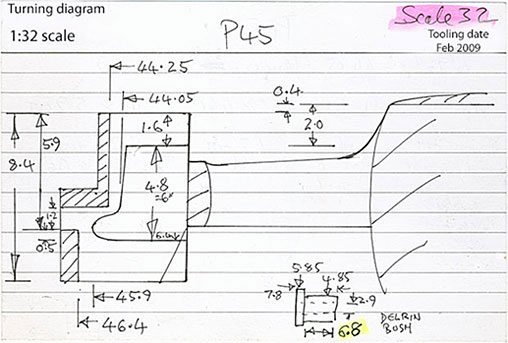 Turning diagram
Scale 32
1:32 scale
P45
Tooling date
Feb 2009
44.25
44.05
0.4
2.0
1.6
5.9
8.4
4.8
=6"
1.2
0.5
45.9
46.4
5.85
4.85
7.8
2.9
6.8
DELRIN
BOSH